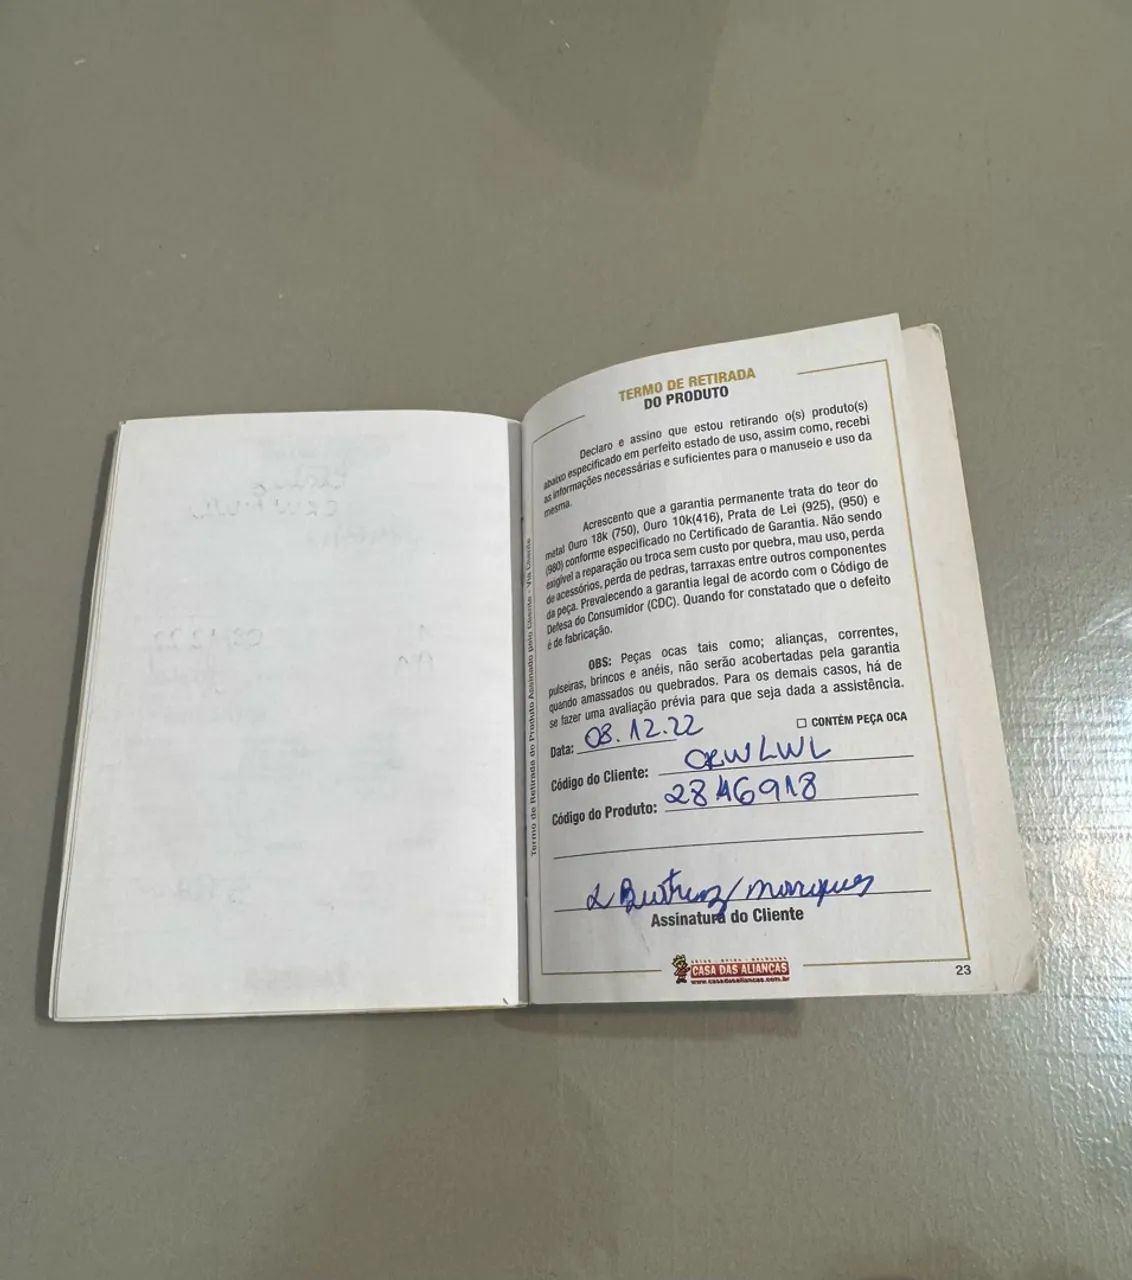 TERMO DE RETIRADA
DO PRODUTO
Declaro e assino que estou retirando o(s) produto(s)
abaixo especificado em perfeito estado de uso, assim como, recebi
as informações necessárias e suficientes para o manuseio e uso da
mesma.
Acrescento que a garantia permanente trata do teor do
metal Ouro 18k (750), Ouro 10k(416), Prata de Lei (925), (950) e
(980) conforme especificado no Certificado de Garantia. Não sendo
exigível a reparação ou troca sem custo por quebra, mau uso, perda
de acessórios, perda de pedras, tarraxas entre outros componentes
da peça. Prevalecendo a garantia legal de acordo com o Código de
Defesa do Consumidor (CDC). Quando for constatado que o defeito
é de fabricação.
OBS: Peças ocas tais como; alianças, correntes,
pulseiras, brincos e anéis, não serão acobertadas pela garantia
quando amassados ou quebrados. Para os demais casos, há de
se fazer uma avaliação prévia para que seja dada a assistência.
☐ CONTÉM PEÇA OCA
Data: 08.12.22
Código do Cliente: CRWLWL
Código do Produto: 2846918
Beatriz Marques
Assinatura do Cliente
CASA DAS ALIANÇAS
www.casadasaliancas.com.br
23
Termo de Retirada do Produto Assinado pelo Cliente - Via Cliente